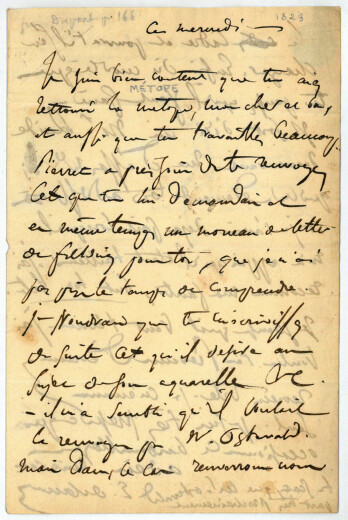 Dupont p. 166
1823
Ce mercredi
Je suis bien content que tu aies
METOPE
retrouvé la metope, mon cher et bon,
et aussi que tu travailles beaucoup.
Pierret a pris soin de te renvoyer
ce que tu lui demandais et
en même temps un morceau de lettre
de fielding pour toi, que je n'ai
pas pris le temps de comprendre.
je voudrais que tu
de suite ce qu'il désire au
sujet de son aquarelle &c.
il m'a semblé qu'il voulait
la renvoyer par W. Ostwald.
mais dans ce cas